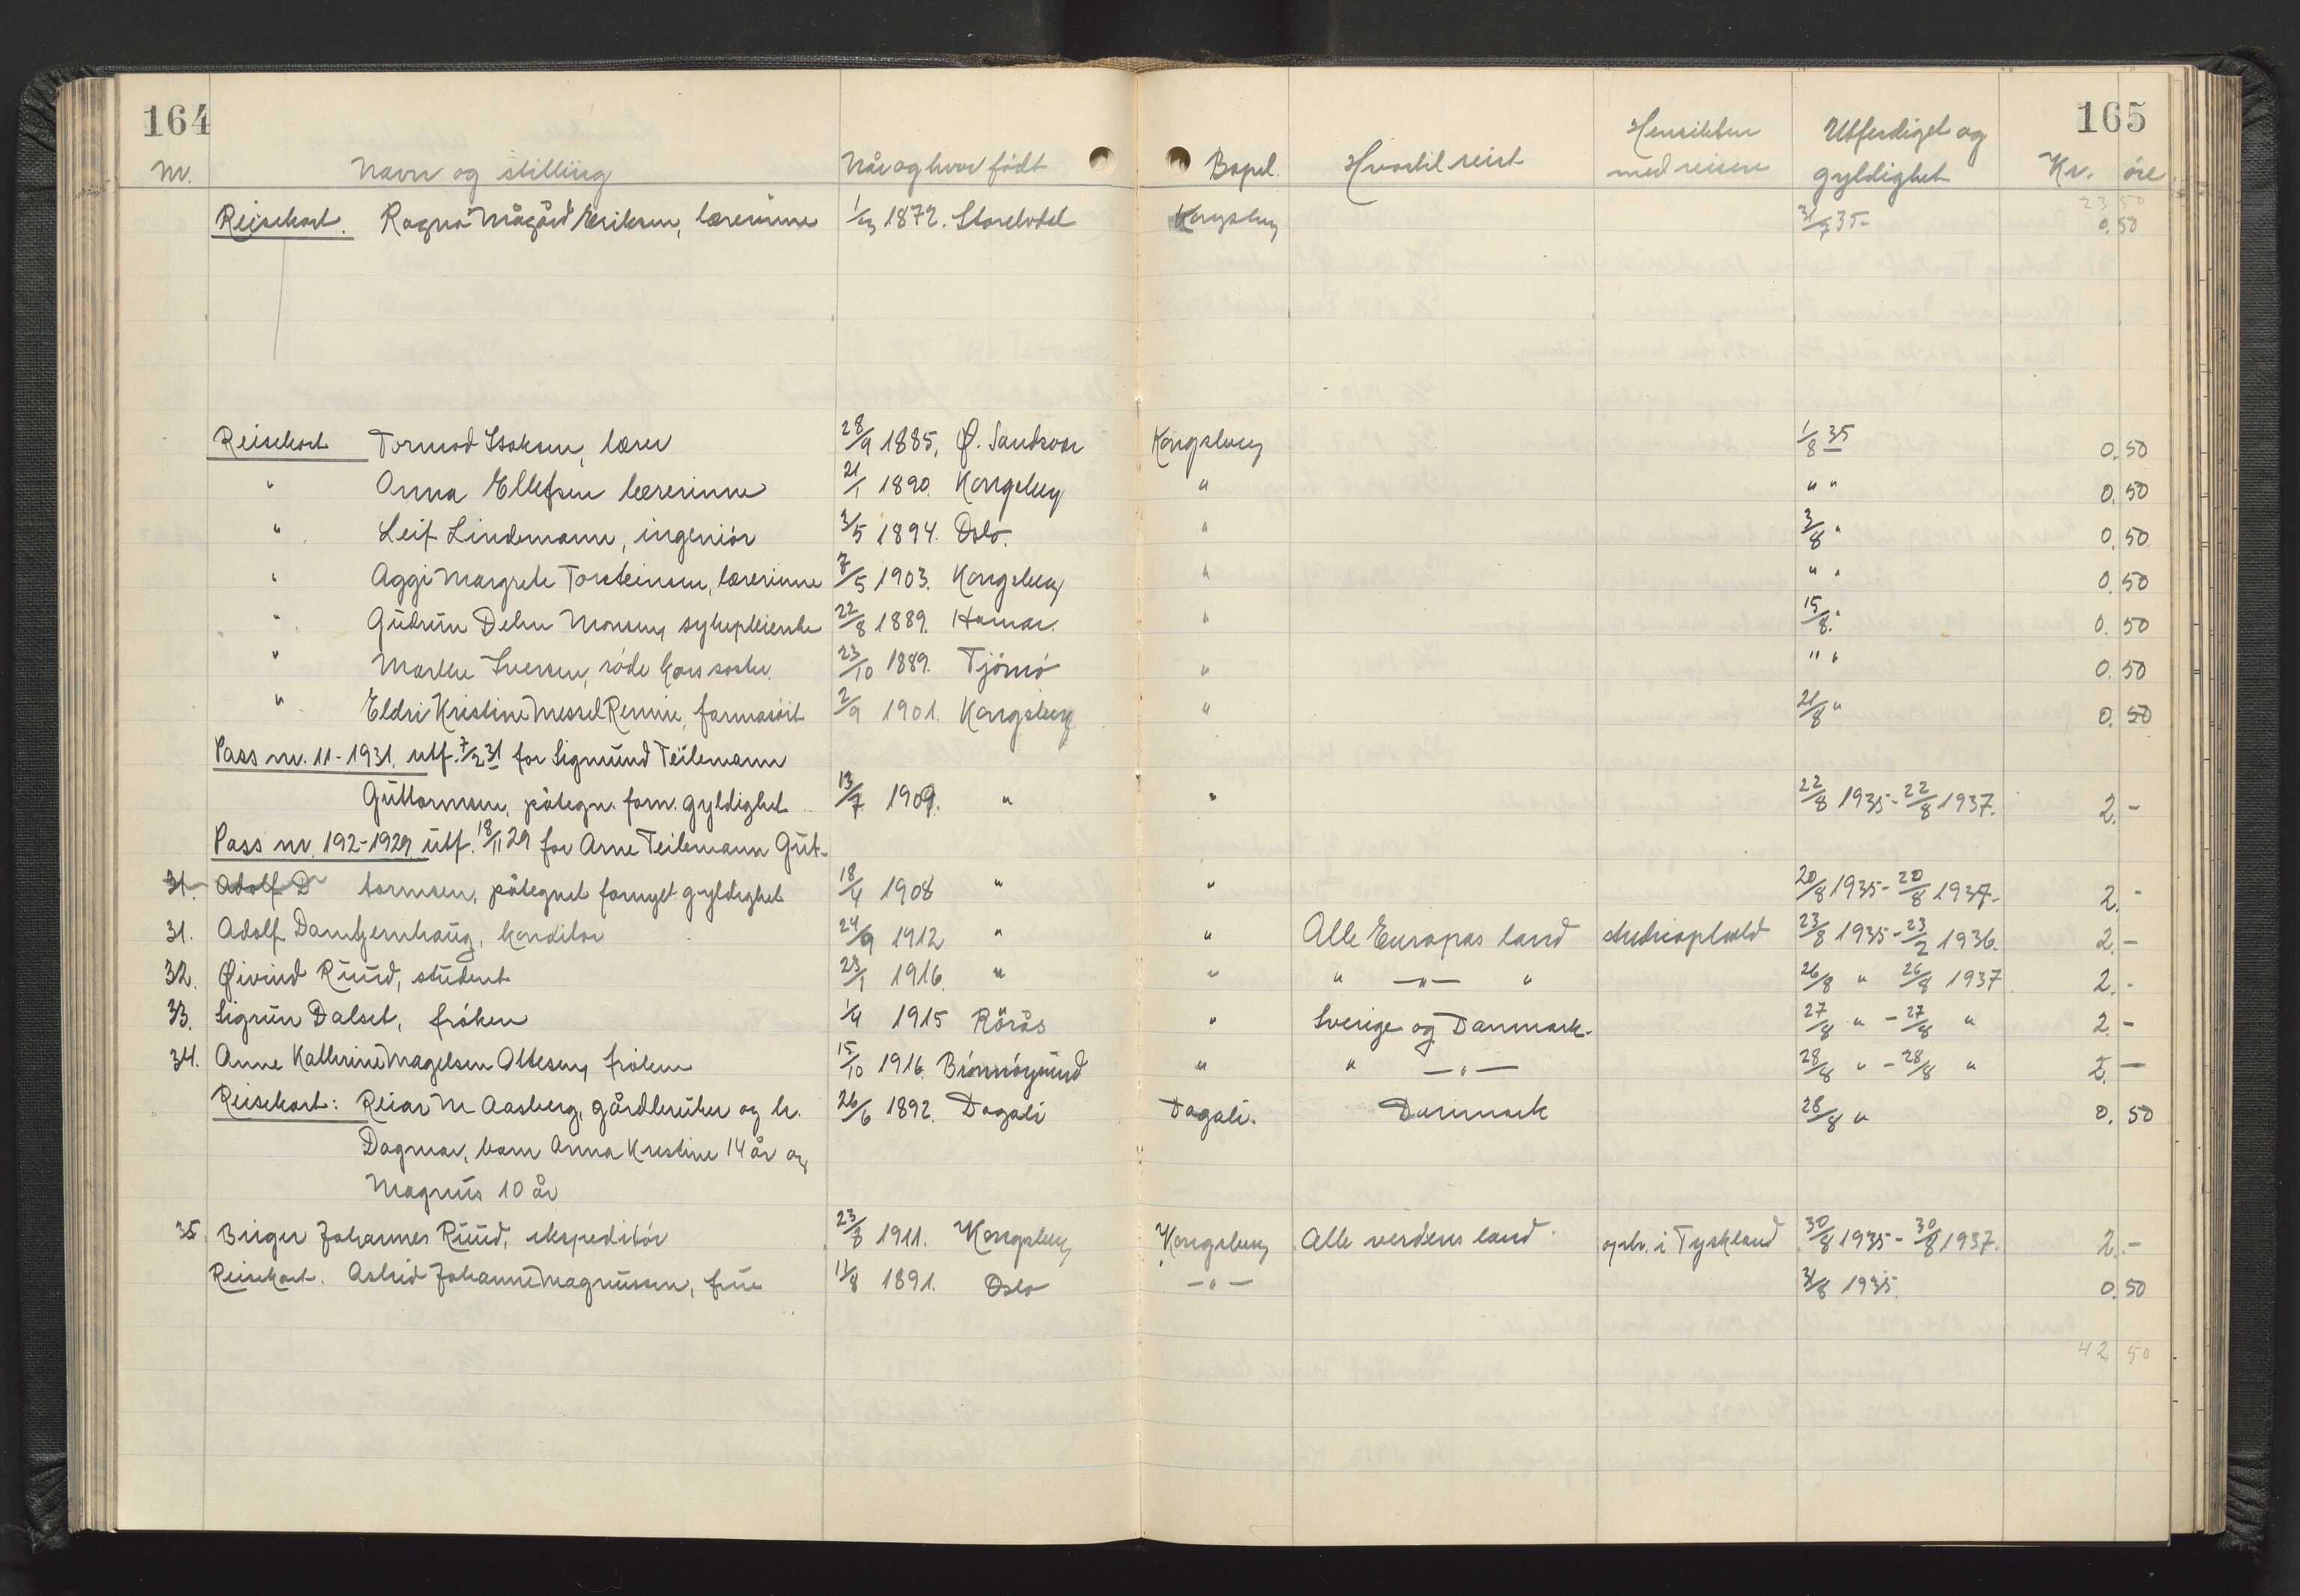 164
165
Nr. Navn og stilling Når og hvor født Bopel. Hvortil reist Hensikten med reisen Utferdiget og gyldighet Kr. øre
23 50
Reisekort. Ragna Eriksen, lærerinne 1/3 1872. Kongsberg 31/7 35- 0,50
Reisekort Tormod Isaksen, lærer 28/9 1885, Ø. Sandsvær Kongsberg 1/8 35 0,50
" Anna Ellefsen lærerinne 21/1 1890. Kongsberg " " " 0,50
" Leif Lindemann, ingeniør 3/5 1894. Oslo. " 3/8 " 0,50
" Aggi Margrete Torsteinsen, lærerinne 7/5 1903. Kongsberg " " " 0,50
" Gudrun Delin Monsen, sykepleierske 22/8 1889. Hamar. " 15/8 " 0.50
" Marthe Iversen, røde kors søster. 23/10 1889. Tjømø " " " 0.50
" Eldri Kristine Messel Rennie, farmasøit 2/9 1901. Kongsberg " 21/8 " 0.50
Pass nr. 11-1931. utf. 7/2 31 for Sigmund Teilemann
Guttormsen, påtegn. forn. gyldighet 13/7 1909. " " 22/8 1935-22/8 1937. 2.-
Pass nr. 192-1929 utf. 18/11 29 for Arne Teilemann Gut-
31. Adolf D tormsen, påtegnet fornyet gyldighet 18/4 1908 " " 20/8 1935-20/8 1937- 2.-
31. Adolf Dantzernhaug, konditor 24/9 1912 " " Alle Europas land studieophold 23/8 1935-23/2 1936. 2.-
32. Øivind Ruud, student 23/1 1916. " " " -"- " 26/8 " 26/8 1937 2.-
33. Sigrun Dalset, frøken 1/4 1915 Rørås " Sverige og Danmark. 27/8 " - 27/8 " 2.-
34. Anne Kathrine Magelsen Ottesen, frøken 15/10 1916. Brønnøysund " " -"- 28/8 " - 28/8 " 2.-
Reisekort: Reiar M Aasberg, gårdbruker og h. 26/6 1892. Dagali Dagali. Danmark 28/8 " 0.50
Dagmar, barn Anna Kristine 14 år og
Magnus 10 år
35. Birger Johannes Ruud, ekspeditør 23/8 1911. Kongsberg Kongsberg Alle verdens land oph. i Tyskland 30/8 1935- 30/8 1937. 2.-
Reisekort. Astrid Johanne Magnussen, frue 11/8 1891. Oslo -"- 31/8 1935. 0.50
42 50